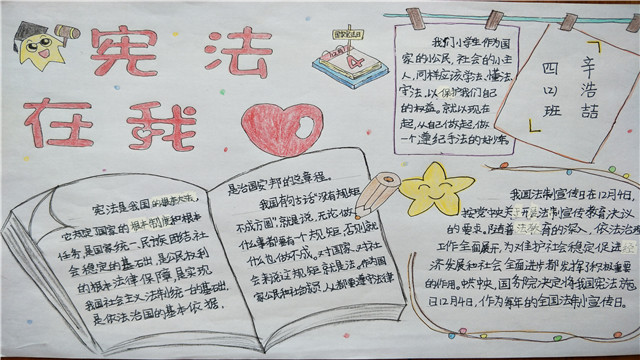 宪法
在我
我们小学生作为国
家的小公民,社会的小主
人,同样应该学法、懂法、
守法,以保护我们自己
的权益。就从现在
起,从自己做起,做
一个遵纪守法的好少年。
辛浩喆
四(2)班
宪法是我国的根本大法,
它规定国家的根本制度和根本
任务,是国家统一、民族团结、社
会稳定的基础,是公民权利
的根本法律保障,是实现
我国社会主义法制统一的基础,
是依法治国的基本依据.
是治国安邦的总章程。
我国有句古话"没有规矩
不成方圆"就是说,无论做
什么事都要有一个规矩,否则就
什么也做不成。对于国家、对于社
会来说这规矩就是法。作为国
家公民和社会成员,人人都要遵守法律
我国法制宣传日在12月4日,
按党中央关于法制宣传教育决议
的要求。随着法教育的深入,依法治理
工作全面展开,为维护社会稳定促进经
济发展和社会全面进步都发挥了积极重要
的作用。中共中央、国务院决定将我国宪法施
日12月4日,作为每年的全国法制宣传日。